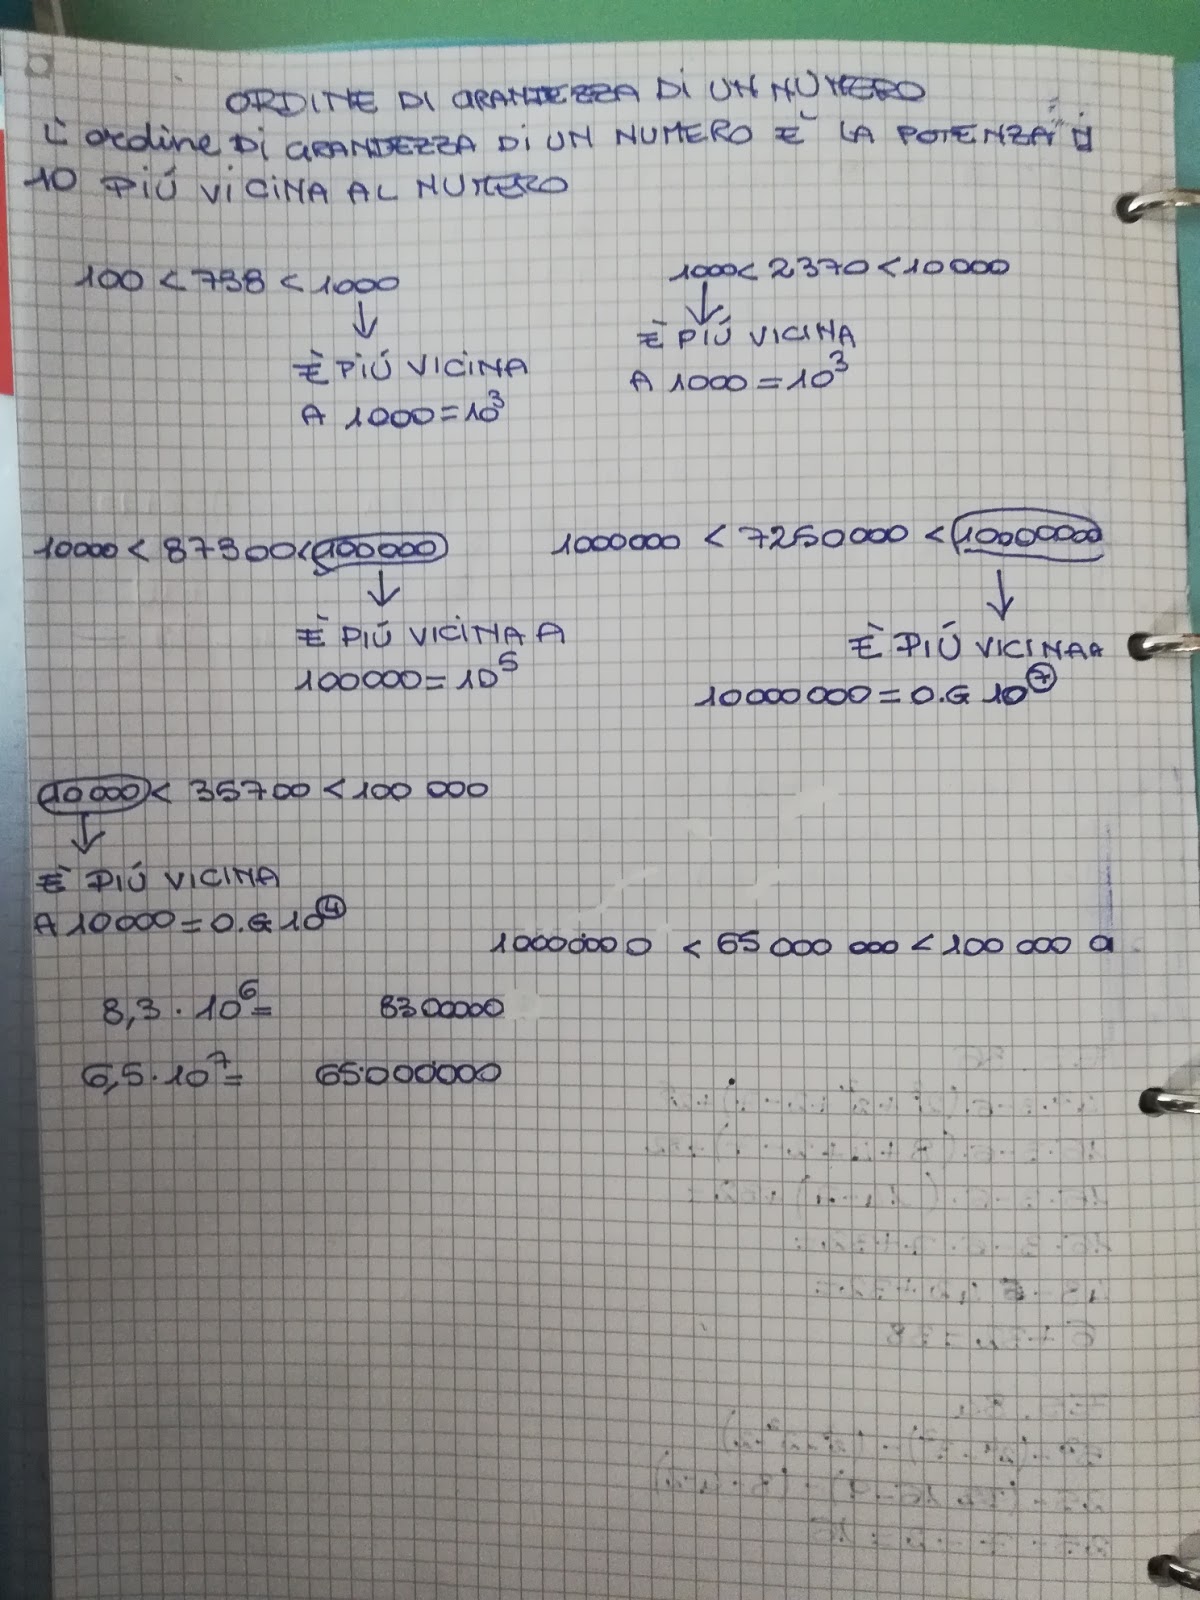 ORDINE DI GRANDEZZA DI UN NUMERO
L'ordine DI GRANDEZZA DI UN NUMERO È LA POTENZA DI
10 PIÚ VICINA AL NUMERO
100 < 738 < 1000
È PIÚ VICINA
A 1000 = 10³
1000 < 2370 < 10000
È PIÚ VICINA
A 1000 = 10³
10000 < 87300 < 100000
È PIÚ VICINA A
100000 = 10⁵
1000000 < 7250000 < 10000000
È PIÚ VICINA A
10000000 = O.G 10⁷
10000 < 35700 < 100 000
È PIÚ VICINA
A 10000 = O.G 10⁴
10000000 < 65 000 000 < 100 000 0
8,3 · 10⁶ = 8300000
6,5 · 10⁷ = 65000000